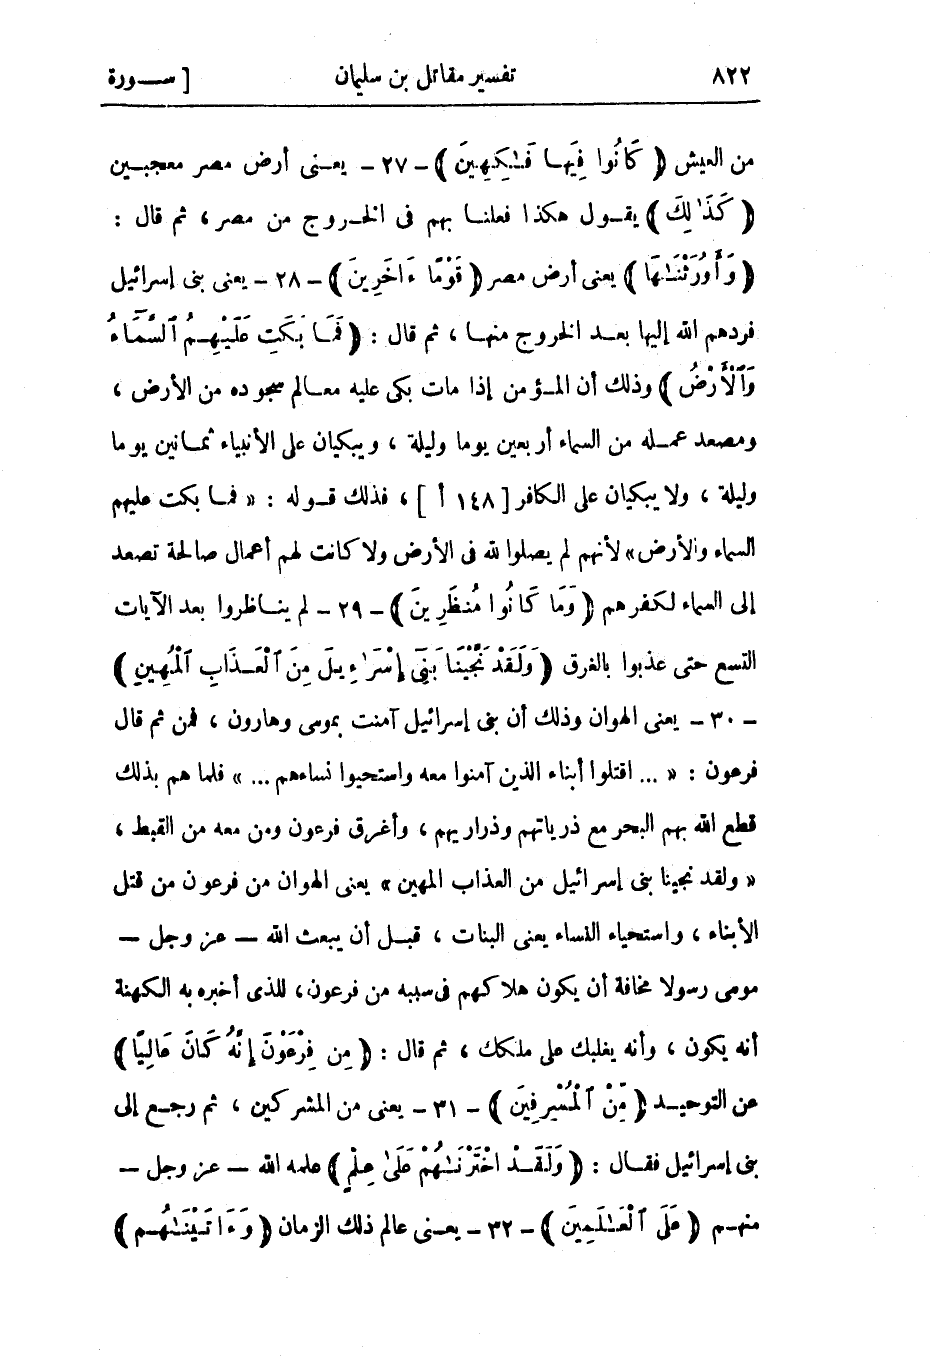 ٨٢٢ تفسير مقاتل بن سليمان [ ســـورة
من العيش ( كَانُوا فِيهَـا فَـٰكِهِينَ ) ـ ٢٧ ـ يعـنى أرض مصر معجبـين
( كَذَٰلِكَ ) يقـول هكذا فعلنـا بهم فى الخـروج من مصر ، ثم قال :
( وَأَوْرَثْنَـٰهَا ) يعنى أرض مصر ( قَوْمًا ءَاخَرِينَ ) ـ ٢٨ ـ يعنى بنى إسرائيل
فردهم الله إليها بعـد الخروج منهـا ، ثم قال : ( فَمَـا بَكَتْ عَلَيْهِـمُ ٱلسَّمَآءُ
وَٱلْأَرْضُ ) وذلك أن المـؤمن إذا مات بكى عليه معـالم سجوده من الأرض ،
ومصعد عمـله من السماء أربعين يوما وليلة ، ويبكيان على الأنبياء ثمـانين يوما
وليلة ، ولا يبكيان على الكافر [ ١٤٨ أ ] ، فذلك قـوله : « فمـا بكت عليهم
السماء والأرض » لأنهم لم يصلوا لله فى الأرض ولا كانت لهم أعمال صالحة تصعد
إلى السماء لكفرهم ( وَمَا كَانُوا مُنظَرِينَ ) ـ ٢٩ ـ لم ينـاظروا بعد الآيات
التسع حتى عذبوا بالغرق ( وَلَقَدْ نَجَّيْنَا بَنِىٓ إِسْرَٰءِيلَ مِنَ ٱلْعَـذَابِ ٱلْمُهِينِ )
ـ ٣٠ ـ يعنى الهوان وذلك أن بنى إسرائيل آمنت بموسى وهارون ، فمن ثم قال
فرعون : « ... اقتلوا أبناء الذين آمنوا معه واستحيوا نساءهم ... » فلما هم بذلك
قطع الله بهم البحر مع ذرياتهم وذراريهم ، وأغرق فرعون ومن معه من القبط ،
« ولقد نجينا بنى إسرائيل من العذاب المهين » يعنى الهوان من فرعون من قتل
الأبناء ، واستحياء النساء يعنى البنات ، قبـل أن يبعث الله — عز وجل —
موسى رسولا مخافة أن يكون هلاكهم فى سببه من فرعون ، للذى أخبره به الكهنة
أنه يكون ، وأنه يغلبك على ملكك ، ثم قال : ( مِن فِرْعَوْنَ إِنَّهُ كَانَ عَالِيًا )
عن التوحيـد ( مِّنَ ٱلْمُسْرِفِينَ ) ـ ٣١ ـ يعنى من المشركين ، ثم رجـع إلى
بنى إسرائيل فقـال : ( وَلَقَـدِ اخْتَرْنَـٰهُمْ عَلَىٰ عِلْمٍ ) علمه الله — عز وجل —
منهـم ( عَلَى ٱلْعَـٰلَمِينَ ) ـ ٣٢ ـ يعـنى عالم ذلك الزمان ( وَءَاتَيْنَـٰهُـم )